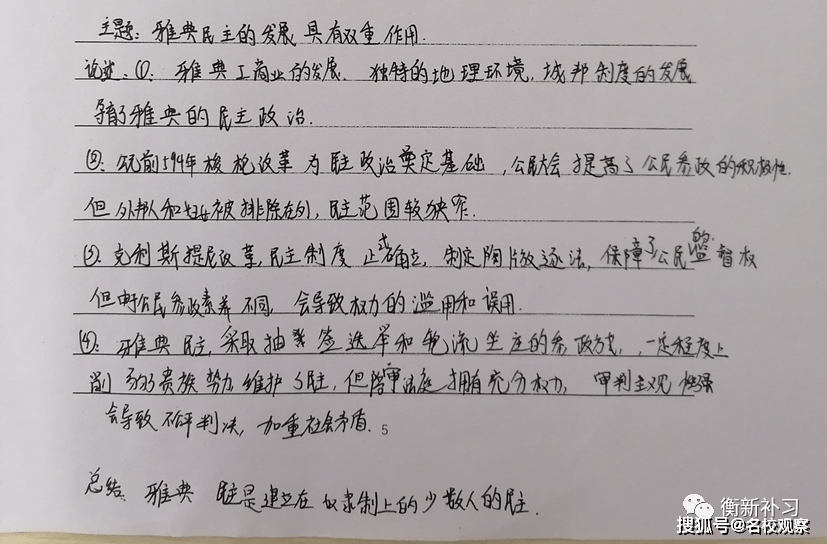 主题：雅典民主的发展具有双重作用.
论述、(1)：雅典工商业的发展.独特的地理环境，城邦制度的发展
孕育了雅典的民主政治.
(2)：公元前594年梭伦改革为民主政治奠定基础，公民大会提高了公民参政的积极性.
但外邦人和妇女被排除在外，民主范围较狭窄.
(3)、克利斯提尼改革，民主制度正式确立，制定陶片放逐法，保障了公民的监督权
但由于公民参政素养不同，会导致权力的滥用和误用.
(4)：雅典民主，采取抽签选举和轮流坐庄的参政方式，一定程度上
削弱贵族势力维护了民主，但陪审法庭拥有充分权力，审判主观性强
会导致不公平判决，加重社会矛盾.5
总结、雅典民主是建立在奴隶制上的少数人的民主.
衡新补习
搜狐号@名校观察